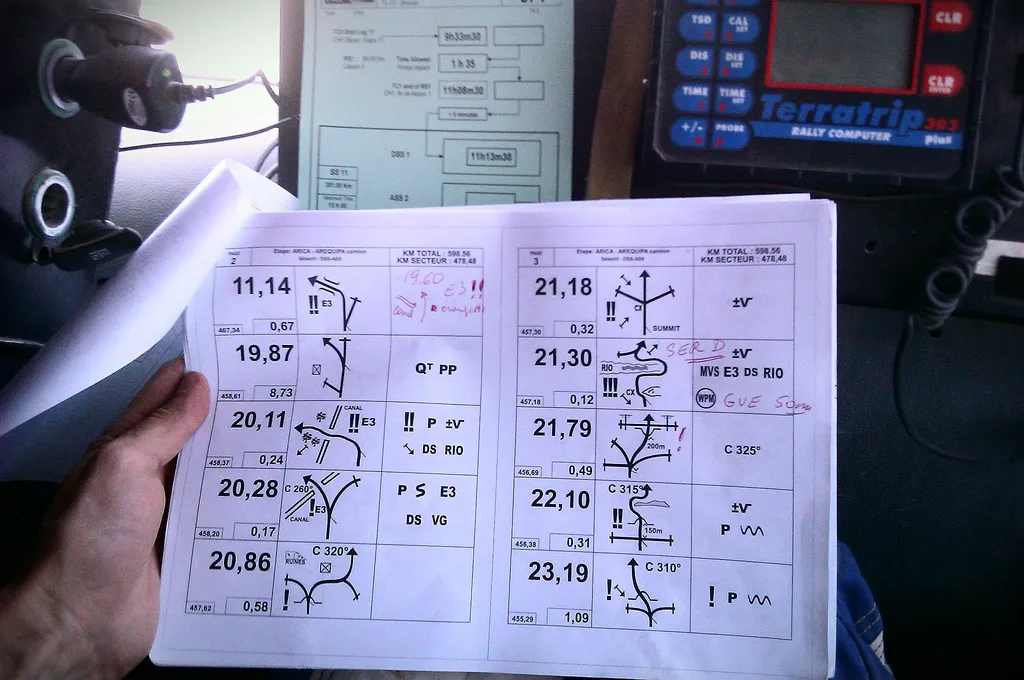 9h33m30
1 h 35
11h08m30
11h13m30
DSS 1
SS 11
ASS 2
TSD
CAL
SET
CLR
DIS
DIS
SET
CLR
ENTER
TIME
TIME
SET
+/-
PROBE
Terratrip 303
plus
RALLY COMPUTER
PAGE
2
Etape: ARICA - AREQUIPA camion
KM TOTAL : 598,56
KM SECTEUR : 478,48
11,14
467,34
0,67
!! E3
-19.60
E3!!
19,87
458,61
8,73
QT PP
20,11
458,37
0,24
CANAL
!! E3
!! P ±V
DS RIO
20,28
458,20
0,17
C 260°
! E3
CANAL
P S E3
DS VG
20,86
457,62
0,58
C 320°
RUINES
!
PAGE
3
Etape: ARICA - AREQUIPA camion
KM TOTAL : 598,56
KM SECTEUR : 478,48
21,18
457,30
0,32
!!
CX
SUMMIT
±V
21,30
457,18
0,12
RIO
!!!
CX
SER D
±V
MVS E3 DS RIO
WPM
GUE 50m
21,79
456,69
0,49
200m
!
C 325°
22,10
456,38
0,31
C 315°
!!
150m
±V
P
23,19
455,29
1,09
!
C 310°
! P